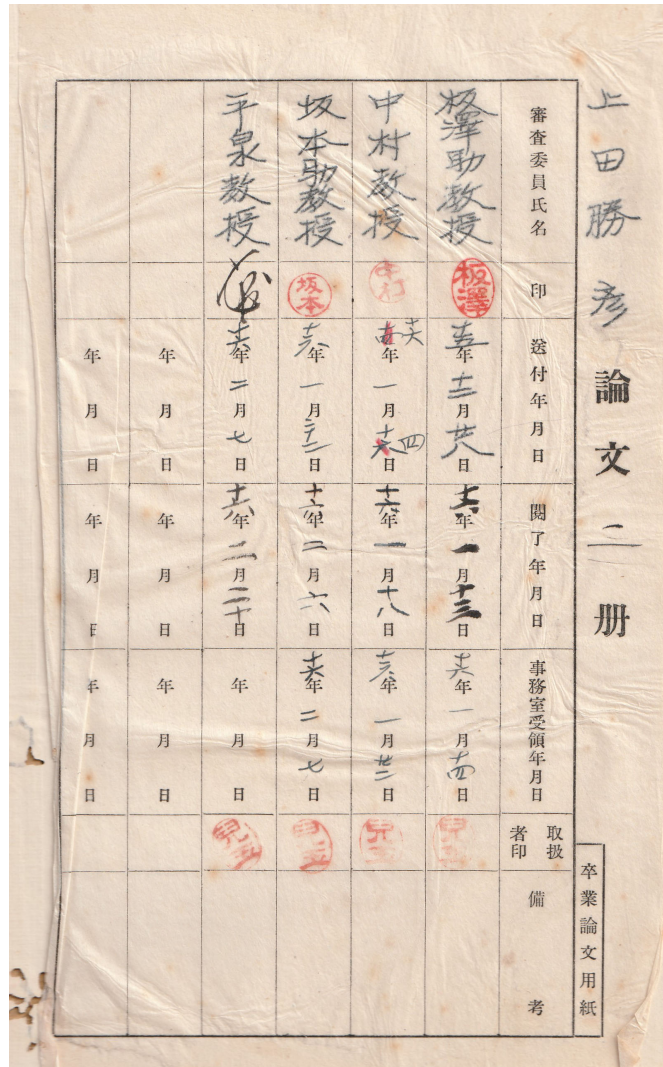 上田勝彦論文二册
卒業論文用紙
審査委員氏名 印 送付年月日 閲了年月日 事務室受領年月日 取扱者印 備考
板澤助教授 板澤 十五年十二月廿八日 十六年一月十三日 十六年一月十四日 児玉
中村教授 中村 十六年一月十四日 十六年一月十八日 十六年一月廿二日 児玉
坂本助教授 坂本 十六年一月二十二日 十六年二月六日 十六年二月七日 児玉
平泉教授 十六年二月七日 十六年二月二十日 年月日 児玉
年月日 年月日 年月日
年月日 年月日 年月日